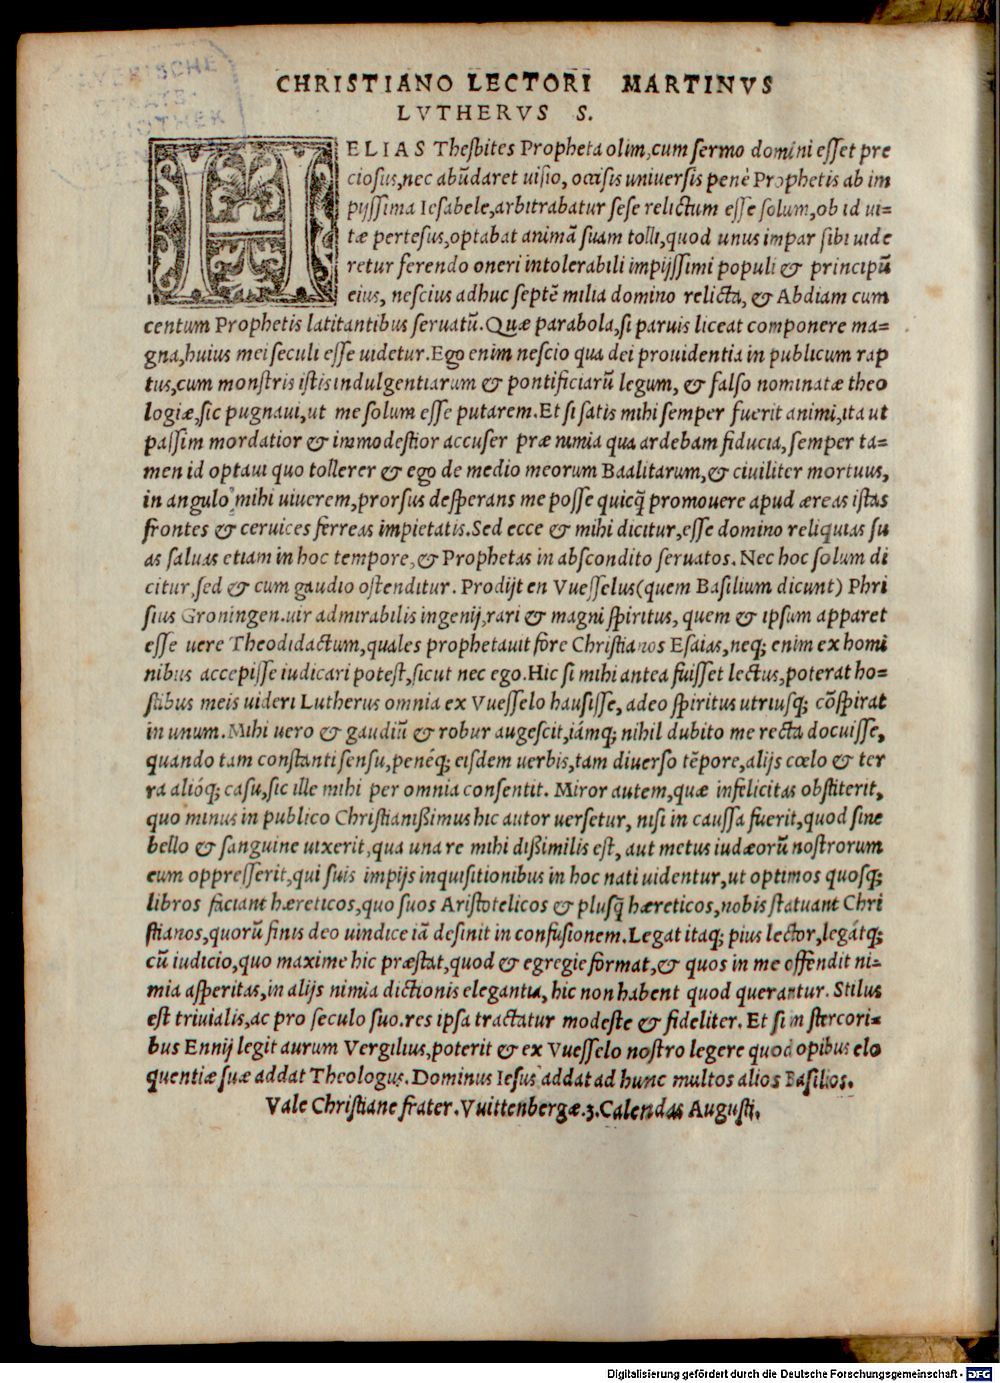 CHRISTIANO LECTORI MARTINVS
LVTHERVS S.
HELIAS Thesbites Propheta olim, cum sermo domini esset pre
ciosus, nec abũdaret uisio, occisis uniuersis penè Prophetis ab im
pijssima Iesabele, arbitrabatur sese relictum esse solum, ob id ui=
tæ pertesus, optabat animã suam tolli, quod unus impar sibi uide
retur ferendo oneri intolerabili impijssimi populi & principũ
eius, nescius adhuc septẽ milia domino relicta, & Abdiam cum
centum Prophetis latitantibus seruatũ. Quæ parabola, si paruis liceat componere ma=
gna, huius mei seculi esse uidetur. Ego enim nescio qua dei prouidentia in publicum rap
tus, cum monstris istis indulgentiarum & pontificiarũ legum, & falso nominatæ theo
logiæ, sic pugnaui, ut me solum esse putarem. Et si satis mihi semper fuerit animi, ita ut
passim mordatior & immodestior accuser præ nimia qua ardebam fiducia, semper ta=
men id optaui quo tollerer & ego de medio meorum Baalitarum, & ciuiliter mortuus,
in angulo mihi uiuerem, prorsus desperans me posse quicq̃ promouere apud æreas istas
frontes & ceruices ferreas impietatis. Sed ecce & mihi dicitur, esse domino reliquias su
as saluas etiam in hoc tempore, & Prophetas in abscondito seruatos. Nec hoc solum di
citur, sed & cum gaudio ostenditur. Prodijt en Vuesselus (quem Basilium dicunt) Phri
sius Groningen. uir admirabilis ingenij, rari & magni spiritus, quem & ipsum apparet
esse uere Theodidactum, quales prophetauit fore Christianos Esaias, neq; enim ex homi
nibus accepisse iudicari potest, sicut nec ego. Hic si mihi antea fuisset lectus, poterat ho=
stibus meis uideri Lutherus omnia ex Vuesselo hausisse, adeo spiritus utriusq; cõspirat
in unum. Mihi uero & gaudiũ & robur augescit, iámq; nihil dubito me recta docuisse,
quando tam constanti sensu, penéq; eisdem uerbis, tam diuerso tẽpore, alijs cœlo & ter
ra alióq; casu, sic ille mihi per omnia consentit. Miror autem, quæ infelicitas obstiterit,
quo minus in publico Christianißimus hic autor uersetur, nisi in caussa fuerit, quod sine
bello & sanguine uixerit, qua una re mihi dißimilis est, aut metus iudæorũ nostrorum
eum oppresserit, qui suis impijs inquisitionibus in hoc nati uidentur, ut optimos quosq;
libros faciant hæreticos, quo suos Aristotelicos & plusq̃ hæreticos, nobis statuant Chri
stianos, quorũ finis deo uindice iã desinit in confusionem. Legat itaq; pius lector, legátq;
cũ iudicio, quo maxime hic præstat, quod & egregie format, & quos in me offendit ni=
mia asperitas, in alijs nimia dictionis elegantia, hic non habent quod querantur. Stilus
est triuialis, ac pro seculo suo. res ipsa tractatur modeste & fideliter. Et si in stercori=
bus Ennij legit aurum Vergilius, poterit & ex Vuesselo nostro legere quod opibus elo
quentiæ suæ addat Theologus. Dominus Iesus addat ad hunc multos alios Basilios.
Vale Christiane frater. Vuittenbergæ. 3. Calendas Augusti.
Digitalisierung gefördert durch die Deutsche Forschungsgemeinschaft - DFG